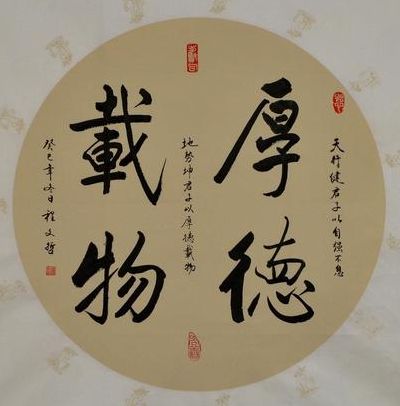 天行健君子以自强不息
厚德
地势坤君子以厚德载物
載物
癸巳年冬日程文哲